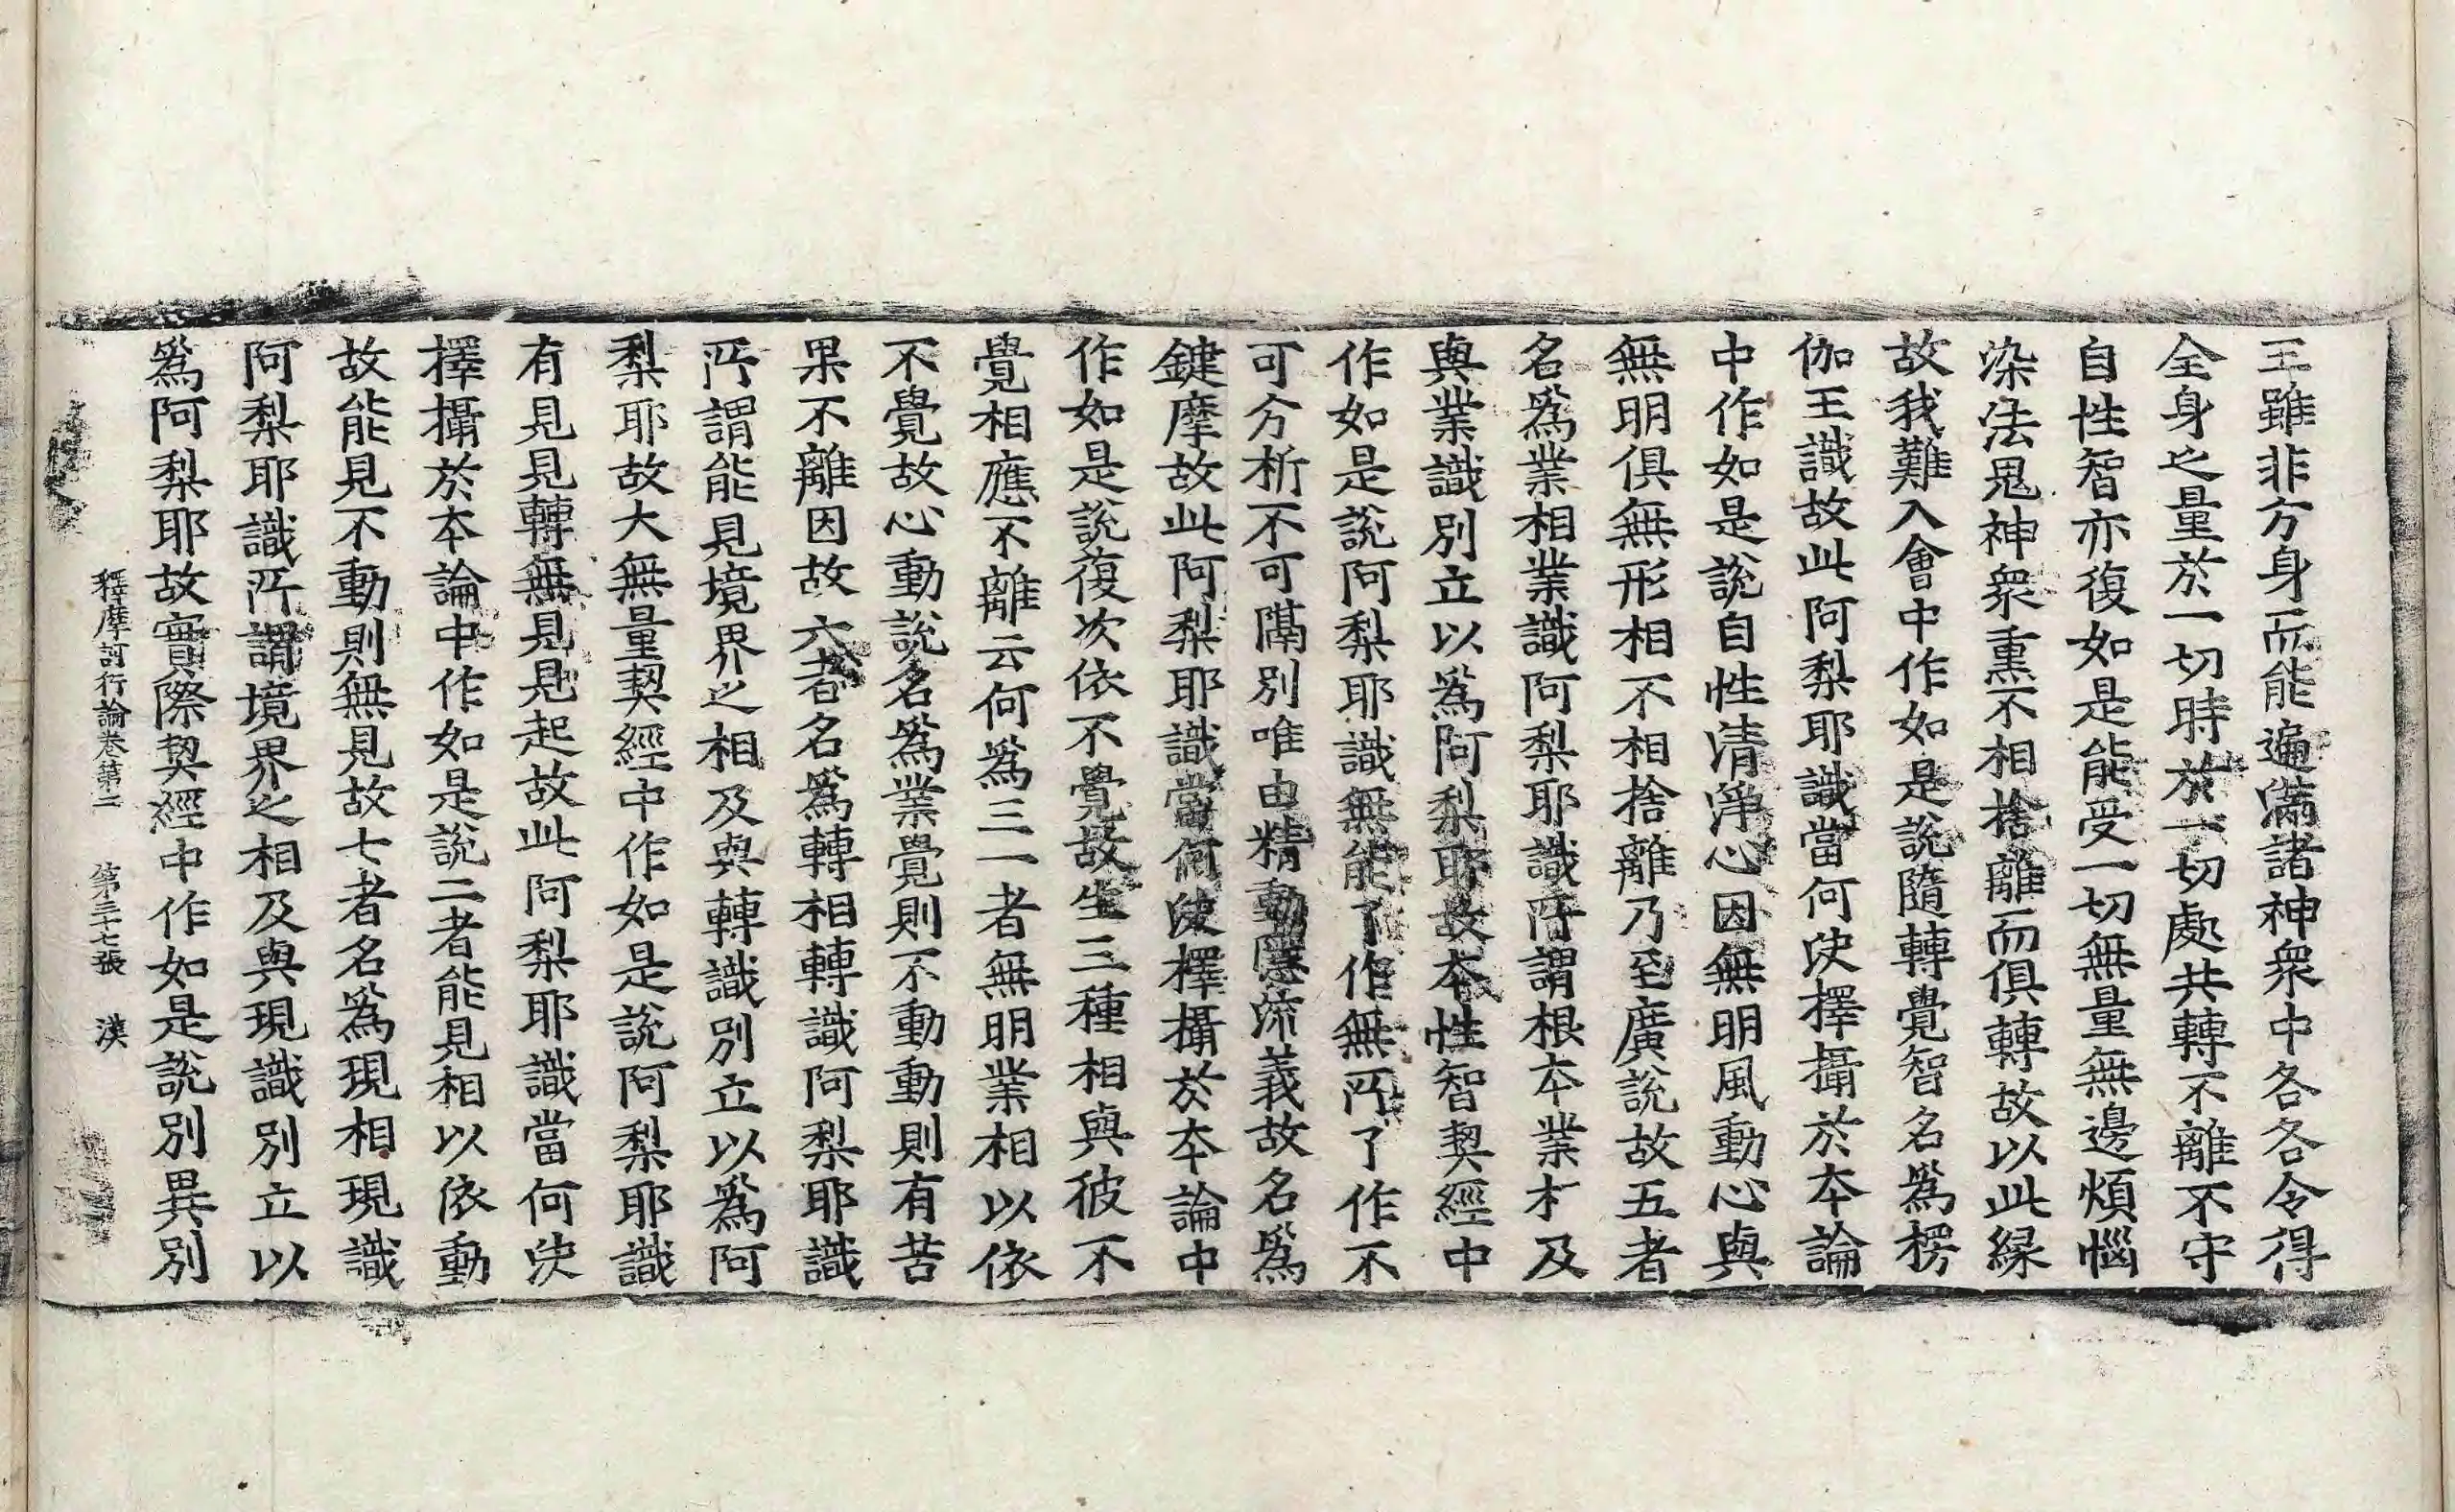 王雖非方身而能遍滿諸神衆中各各令得
全身之量於一切時於一切處共轉不離不守
自性智亦復如是能受一切無量無邊煩惱
染法鬼神衆熏不相捨離而俱轉故以此縁
故我難入會中作如是說隨轉覺智名爲楞
伽王識故此阿梨耶識當何決擇攝於本論
中作如是說自性清淨心因無明風動心與
無明俱無形相不相捨離乃至廣說故五者
名爲業相業識阿梨耶識所謂根本業相及
與業識別立以爲阿梨耶故本性智契經中
作如是說阿梨耶識無能了作無所了作不
可分析不可隔別唯由精動隱流義故名爲
鍵摩故此阿梨耶識當何決擇攝於本論中
作如是說復次依不覺故生三種相與彼不
覺相應不離云何爲三一者無明業相以依
不覺故心動說名爲業覺則不動動則有苦
果不離因故六者名爲轉相轉識阿梨耶識
所謂能見境界之相及與轉識別立以爲阿
梨耶故大無量契經中作如是說阿梨耶識
有見見轉無見見起故此阿梨耶識當何決
擇攝於本論中作如是說二者能見相以依動
故能見不動則無見故七者名爲現相現識
阿梨耶識所謂境界之相及與現識別立以
爲阿梨耶故實際契經中作如是說別異別
釋摩訶衍論卷第二 第三十七張 漢